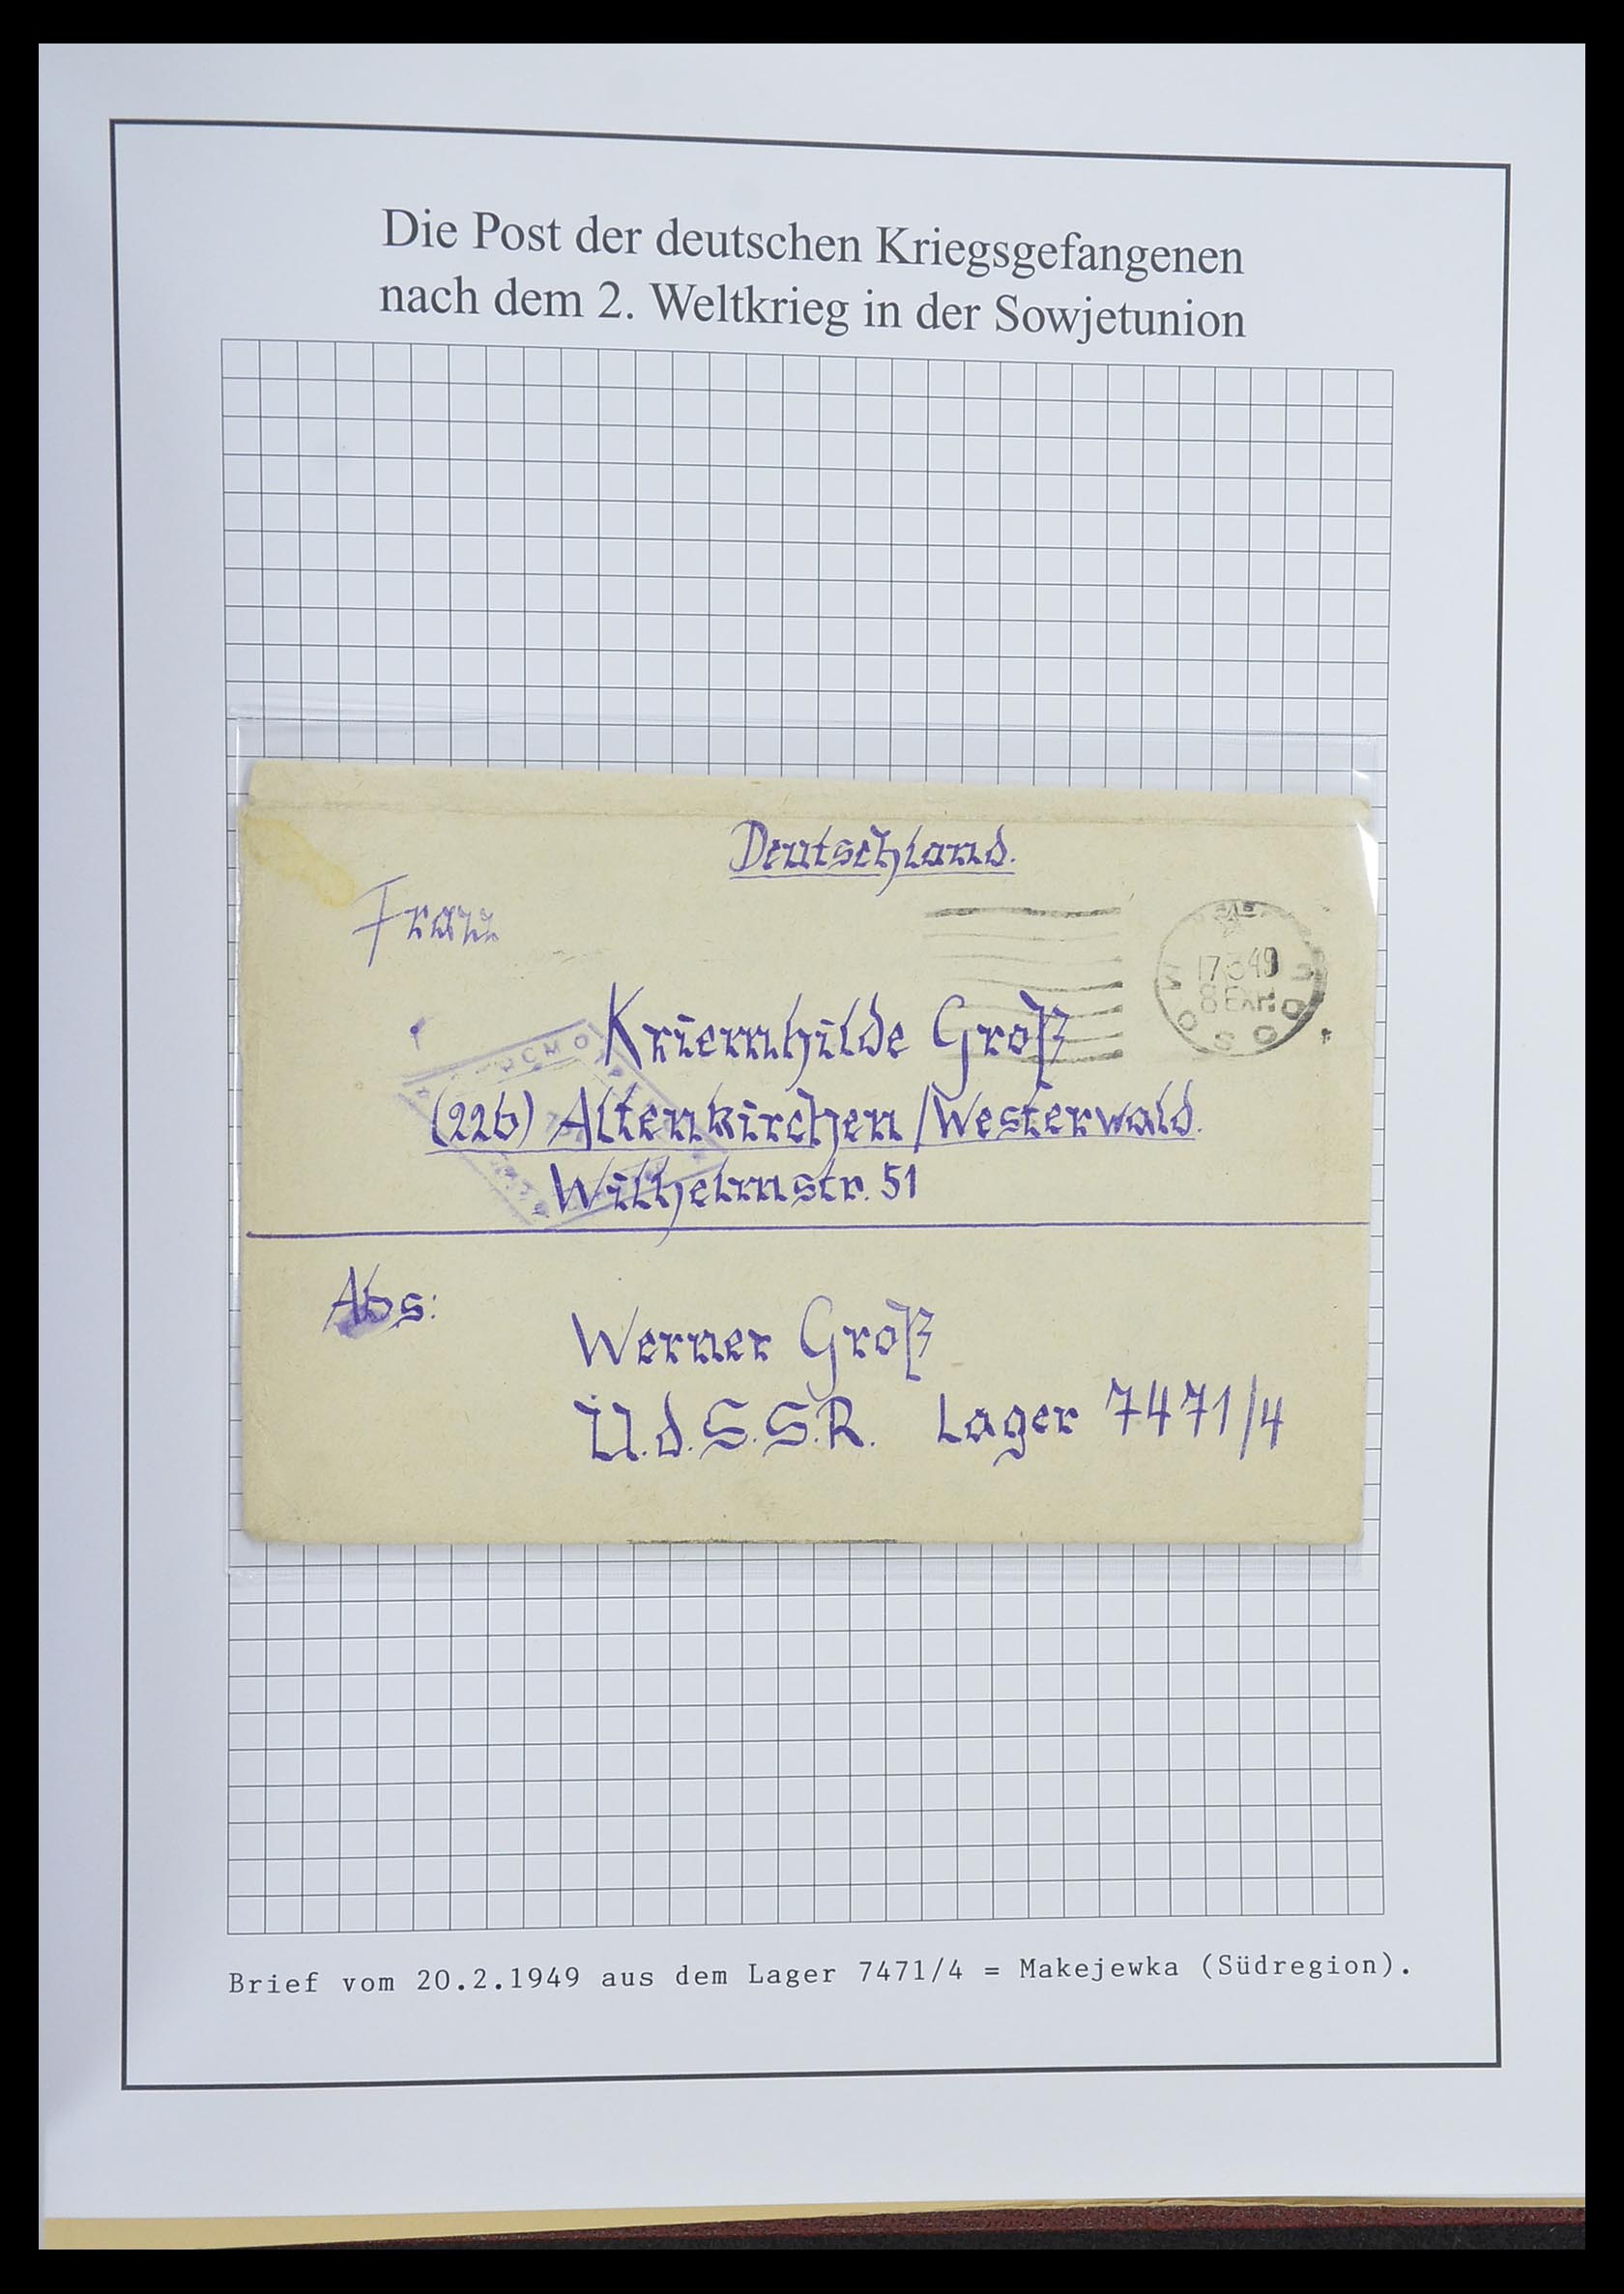 Die Post der deutschen Kriegsgefangenen
nach dem 2. Weltkrieg in der Sowjetunion
Deutschland.
Frau
Kriemhilde Groß
(22b) Altenkirchen/Westerwald.
Wilhelmstr. 51
Abs:
Werner Groß
Ü.d.S.S.R. Lager 7471/4
Brief vom 20.2.1949 aus dem Lager 7471/4 = Makejewka (Südregion).